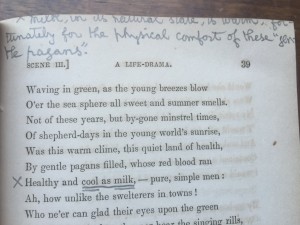 X Milk, in its natural state, is warm, for-
tunately for the physical comfort of these "gen
tle pagans".
SCENE III.] A LIFE-DRAMA. 39
Waving in green, as the young breezes blow
O'er the sea sphere all sweet and summer smells.
Not of these years, but by-gone minstrel times,
Of shepherd-days in the young world's sunrise,
Was this warm clime, this quiet land of health,
By gentle pagans filled, whose red blood ran
X Healthy and cool as milk,—pure, simple men:
Ah, how unlike the swelterers in towns!
Who ne'er can glad their eyes upon the green
hear the singing rills,